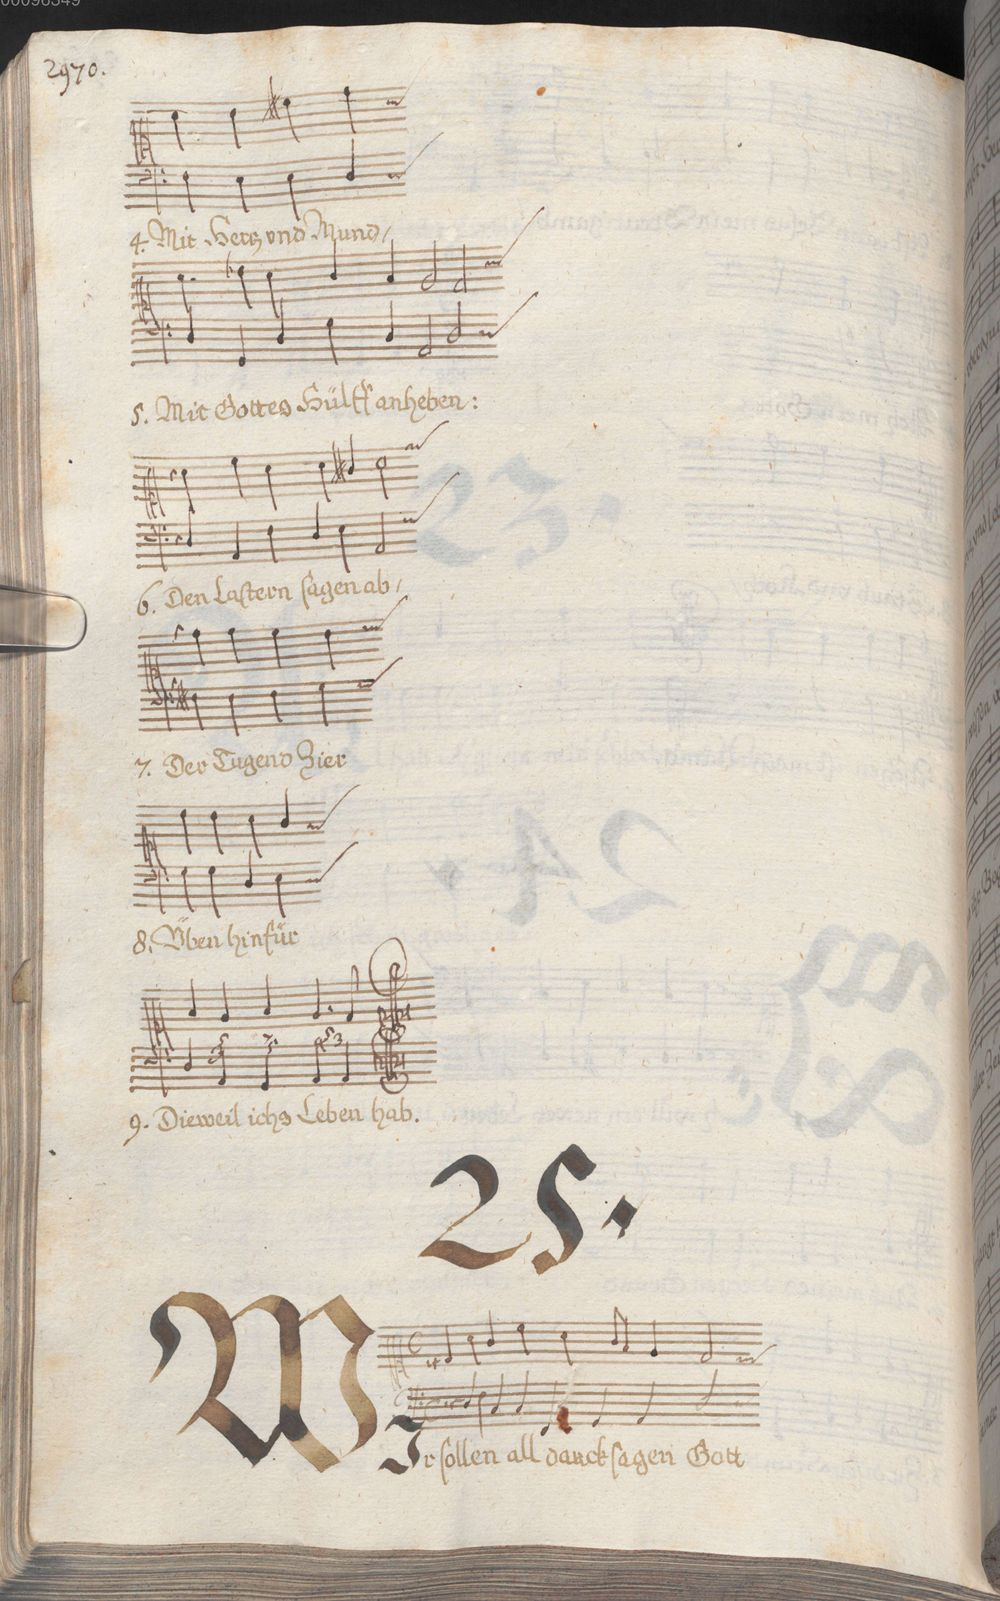 00098349
2970.
4. Mit Hertz vnd Mund,
5. Mit Gottes Hülff anheben:
6. Den Lastern sagen ab,
7. Der Tugend Zier
8. Vben hinfür
9. Dieweil ichs Leben hab.
25.
WIr sollen all danck sagen Gott